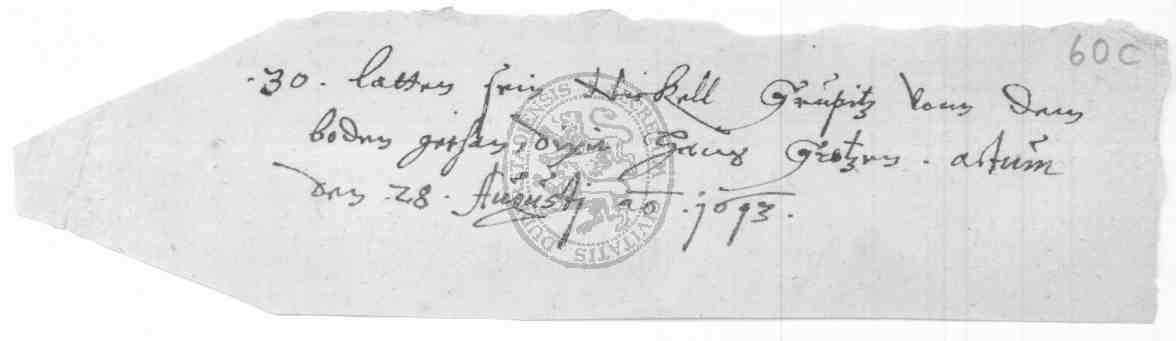 60C
.30. latten sein Nickell Greupitz vonn dem
boden geben, dixit Hans Grotzen. actum
den .28. Augusti ao .1693.
SIGILLUM CIVITATIS